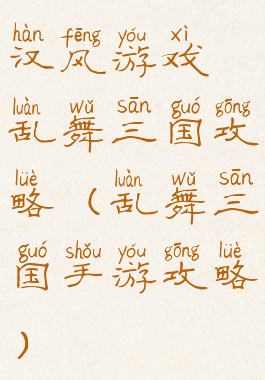 hàn fēng yóu xì
汉风游戏
luàn wǔ sān guó gōng
乱舞三国攻
lüè luàn wǔ sān
略（乱舞三
guó shǒu yóu gōng lüè
国手游攻略
）